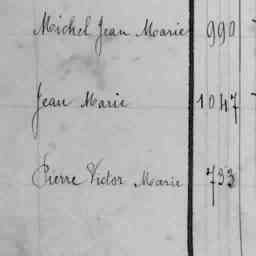 Michel Jean Marie 990
Jean Marie 1047
Pierre Victor Marie 733